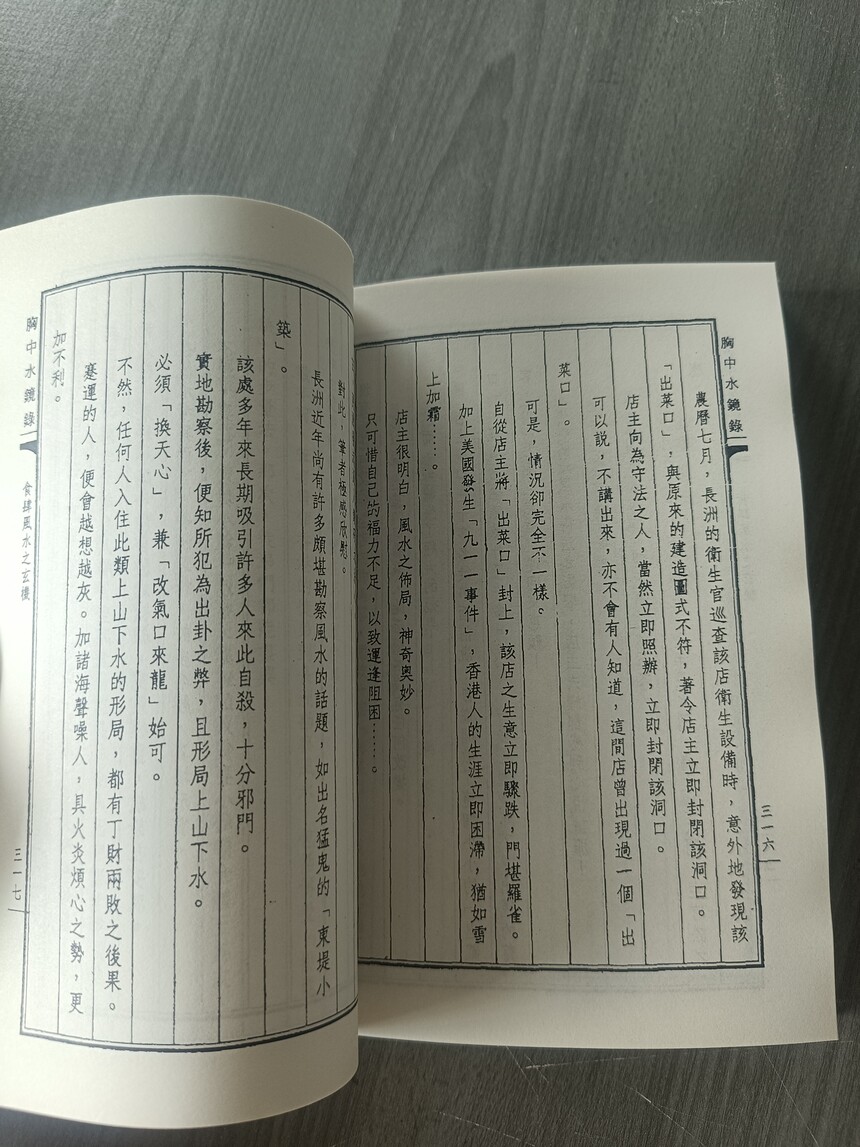 胸中水鏡錄
三一六
農曆七月，長洲的衛生官巡查該店衛生設備時，意外地發現該
「出菜口」，與原來的建造圖式不符，著令店主立即封閉該洞口。
店主向為守法之人，當然立即照辦，立即封閉該洞口。
可以説，不講出來，亦不會有人知道，這間店曾出現過一個「出
菜口」。
可是，情況卻完全不一樣。
自從店主將「出菜口」封上，該店之生意立即驟跌，門堪羅雀。
加上美國發生「九一一事件」，香港人的生涯立即困滯，猶如雪
上加霜……。
店主很明白，風水之佈局，神奇奧妙。
只可惜自己的福力不足，以致運逢阻困……。
對此，筆者極感欣慰。
長洲近年尚有許多頗堪勘察風水的話題，如出名猛鬼的「東堤小
築」。
該處多年來長期吸引許多人來此自殺，十分邪門。
實地勘察後，便知所犯為出卦之弊，且形局上山下水。
必須「換天心」，兼「改氣口來龍」始可。
不然，任何人入住此類上山下水的形局，都有丁財兩敗之後果。
蹇運的人，便會越想越灰。加諸海聲噪人，具火炎煩心之勢，更
加不利。
胸中水鏡錄
食肆風水之玄機
三一七